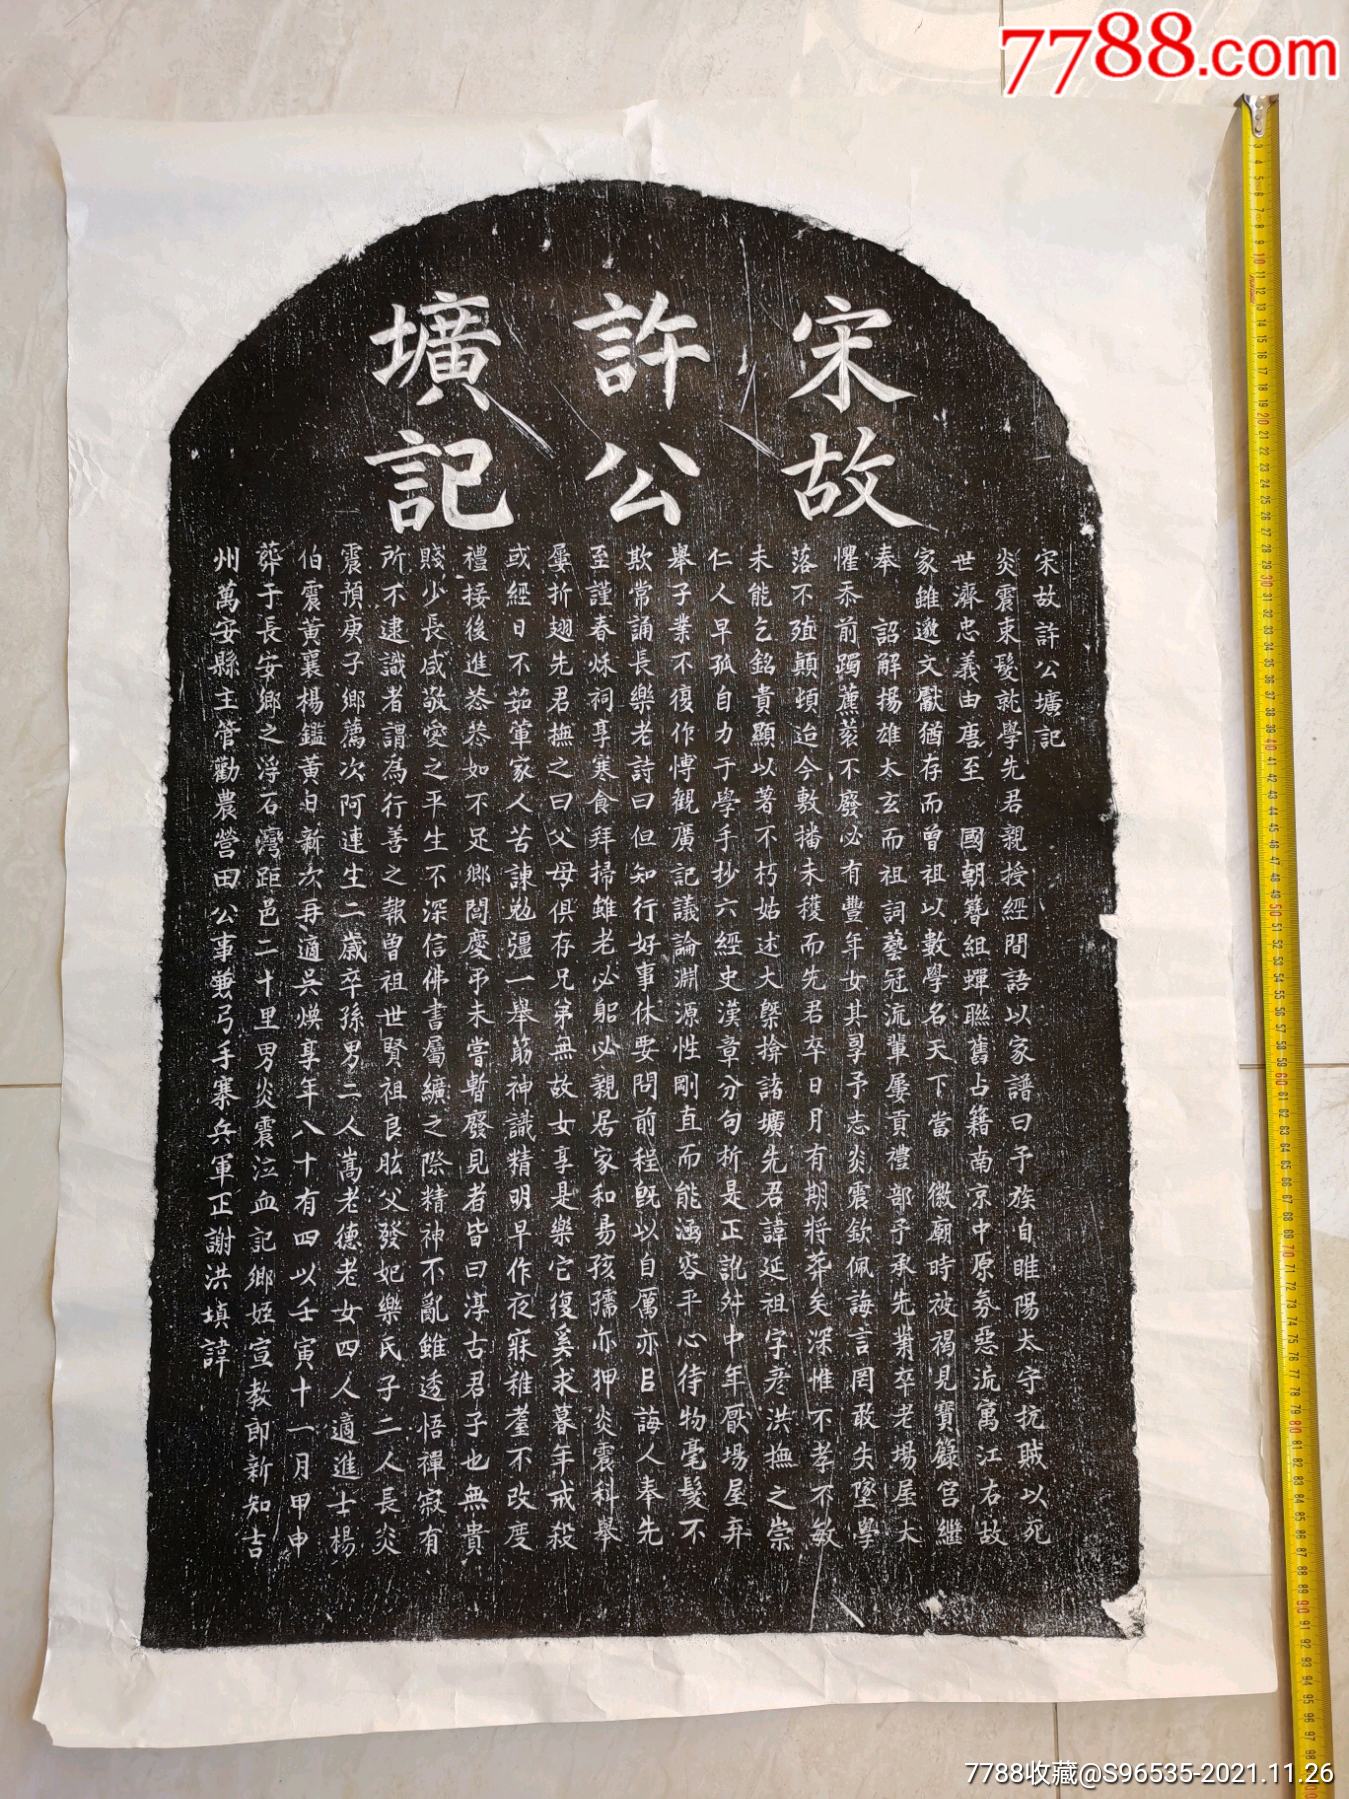 7788.com
宋故
許公
壙記
宋故許公壙記
炎震束髮就學先君親授經間語以家譜曰予族自睢陽太守抗賊以死
世濟忠義由唐至 國朝簪組蟬聯舊占籍南京中原氛惡流寓江右故
家雖邈文獻猶存而曾祖以數學名天下當 徽廟時被褐見寶錄宮繼
奉 詔解揚雄太玄而祖詞藝冠流輩屢貢禮部乎承先業卒老場屋大
懼忝前躅藨蔉不廢必有豐年女其學予志炎震欽佩誨言罔敢失墜學
落不殖顛頓迨今敷播未穫而先君卒日月有期將葬矣深惟不孝不敏
未能乞銘貴顯以著不朽姑述大槩揜諸壙先君諱延祖字彥洪撫之崇
仁人早孤自力于學手抄六經史漢章分句析是正訛舛中年厭場屋弃
舉子業不復作博觀廣記議論淵源性剛直而能涵容平心待物毫髮不
欺常誦長樂老詩曰但知行好事休要問前程旣以自厲亦㠯誨人奉先
至謹春秌祠享寒食拜掃雖老必躬必親居家和易孩孺亦甲炎震科舉
屢折翅先君撫之曰父母俱存兄弟無故女享是樂它復奚求暮年戒殺
或經日不茹葷家人苦諫勉彊一舉筋神識精明早作夜寐稚耋不改度
禮接後進恭恭如不足鄉閭慶弔未嘗暫廢見者皆曰淳古君子也無貴
賤少長咸敬愛之平生不深信佛書屬纊之際精神不亂雖透悟禪寂有
所不逮識者謂為行善之報曾祖世賢祖良肱父發妃樂氏子二人長炎
震預庚子鄉薦次阿連生二歲卒孫男二人嵩老德老女四人適進士楊
伯震黃襄楊鑑黃日新次再適吳煥享年八十有四以壬寅十一月甲申
葬于長安鄉之浮石灣距邑二十里男炎震泣血記鄉姪宣教郎新知吉
州萬安縣主管勸農營田公事兼弓手寨兵軍正謝洪填諱
7788收藏@S96535-2021.11.26